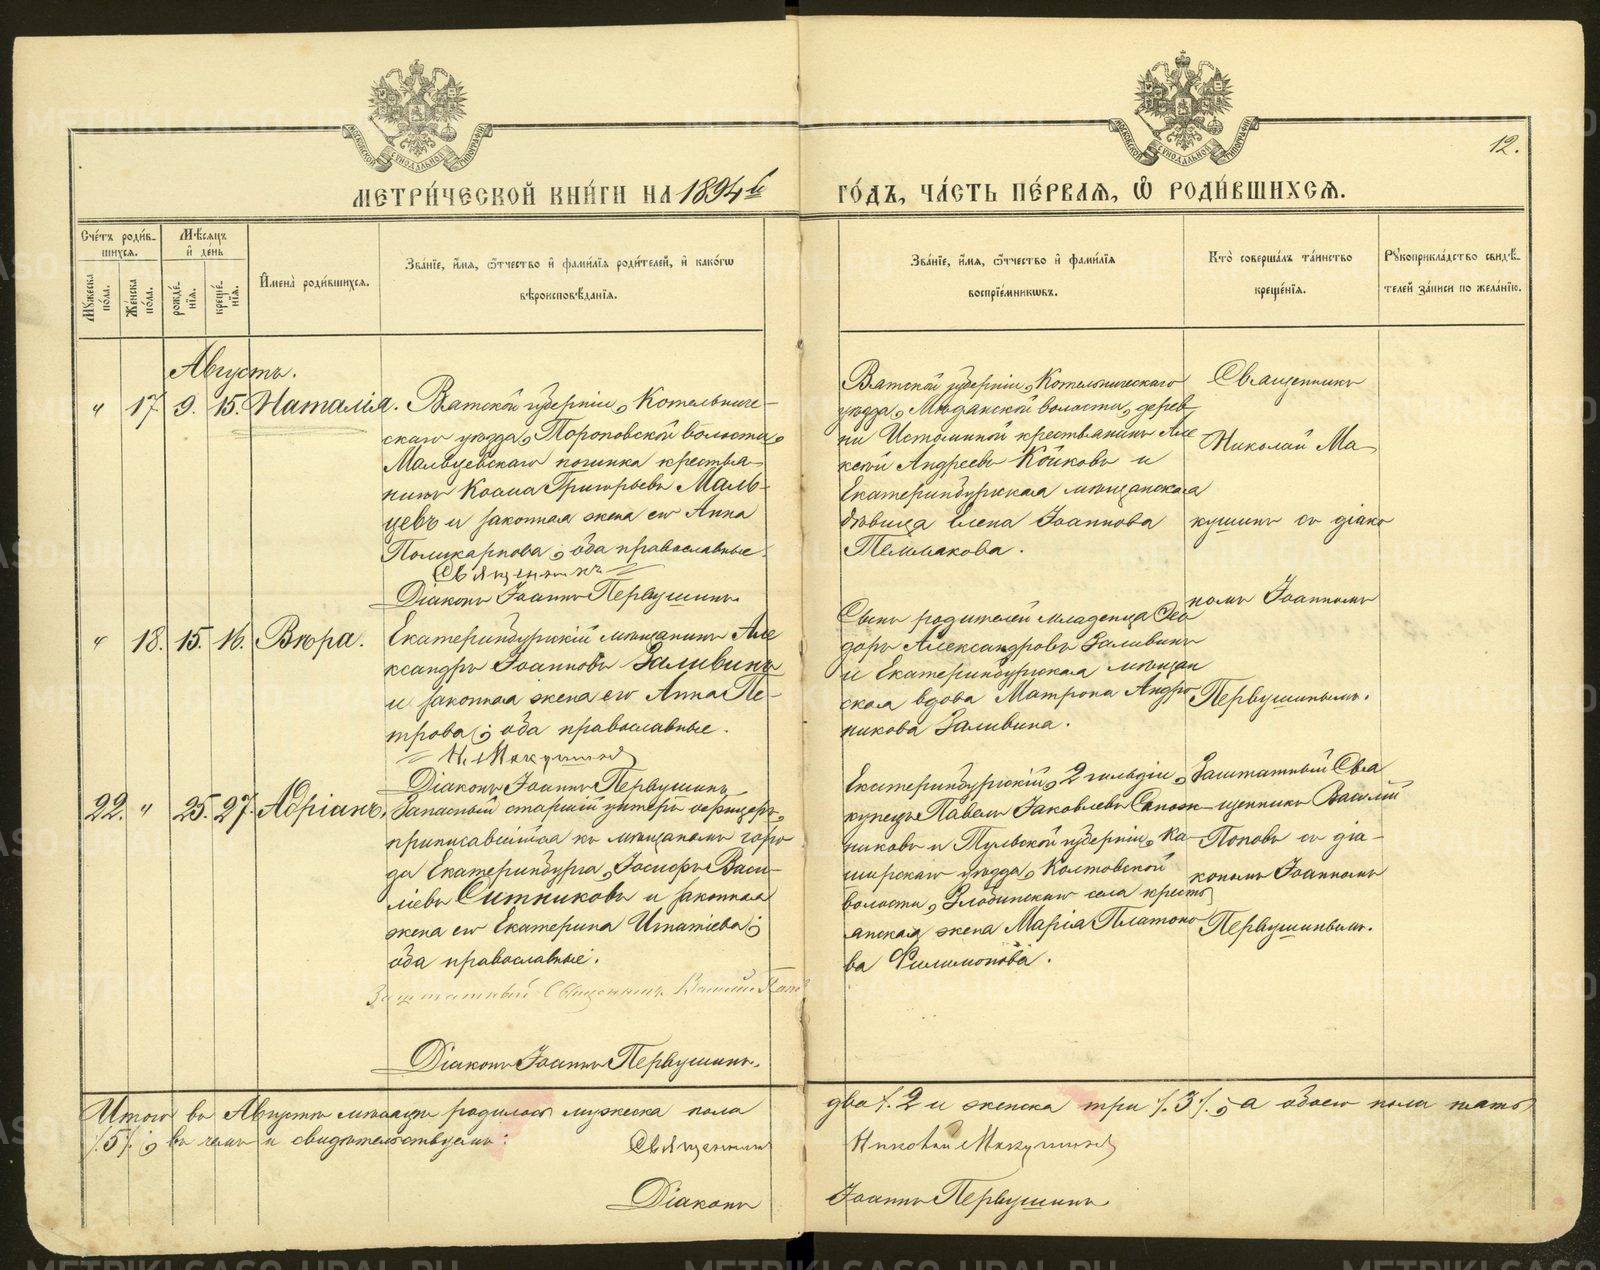 МЕТРИ́ЧЕСКОЙ КНИ́ГИ НА 1894й
ГО́ДЪ, ЧА́СТЬ ПЕ́РВАѦ, Ѡ РОДИ́ВШИХСѦ.
12.
Сче́тъ роди́вшихсѧ.
Му́жеска по́ла.
Же́нска по́ла.
Мѣ́сѧцъ и де́нь
рожде́нїѧ.
креще́нїѧ.
Имена̀ роди́вшихсѧ.
Зва́нїе, и́мѧ, ѻ́тчество и фами́лїѧ роди́телей, и како́гѡ
вѣроисповѣ́данїѧ.
Зва́нїе, и́мѧ, ѻ́тчество и фами́лїѧ
воспрїе́мникѡвъ.
Кто̀ соверша́лъ та́инство
креще́нїѧ.
Рꙋкоприкла́дство свидѣ́-
телей за́писи по жела́нїю.
Августъ.
" 17 9. 15. Наталія.
Вятской губерніи, Котельниче-
скаго уѣзда, Тороповской волости,
Мальцевскаго починка крестья-
нинъ Косма Григорьевъ Маль-
цевъ и законная жена его Анна
Поликарпова; оба православные.
Священникъ
Діаконъ Іоаннъ Первушинъ.
Вятской губерніи, Котельническаго
уѣзда, Медянской волости, дерев-
ни Истоминой крестьянинъ Але
ксѣй Андреевъ Койковъ и
Екатеринбургская мѣщанская
дѣвица Елена Іоаннова
Священникъ
Николай Ма-
кушинъ съ діако
номъ Іоанномъ
Первушинымъ.
" 18. 15. 16. Вѣра.
Екатеринбургскій мѣщанинъ Але
ксандръ Іоанновъ Заливинъ
и законная жена его Анна Пе-
трова; оба православные.
Н. Макушинъ
Діаконъ Іоаннъ Первушинъ
Сынъ родителей младенца Ѳео
доръ Александровъ Заливинъ
и Екатеринбургская мѣщан
ская вдова Матрона Андро
никова Заливина.
22. " 25. 27. Адріанъ.
Запасный старшій унтеръ офицеръ,
приписавшійся къ мѣщанамъ горо
да Екатеринбурга, Іосифъ Васи-
ліевъ Ситниковъ и законная
жена его Екатерина Игнатіева;
оба православные.
Заштатный Священникъ Василій Попо
Діаконъ Іоаннъ Первушинъ.
Екатеринбургскій, 2 гильдіи,
купецъ Павелъ Іаковлевъ Сапож-
никовъ и Тульской губерніи, Ка-
ширскаго уѣзда, Колтовской
волости, Злобинскаго села кресть
янская жена Марія Платоно-
ва Филимонова.
Заштатный Свя
щенникъ Василій
Поповъ съ діа-
кономъ Іоанномъ
Первушинымъ.
Итого въ Августѣ мѣсяцѣ родилось мужеска пола
два /.2 и женска три /.3/.; а обоего пола пять
/.5/.; въ чемъ и свидѣтельствуемъ:
Священникъ
Николай Макушинъ
Діаконъ
Іоаннъ Первушинъ.